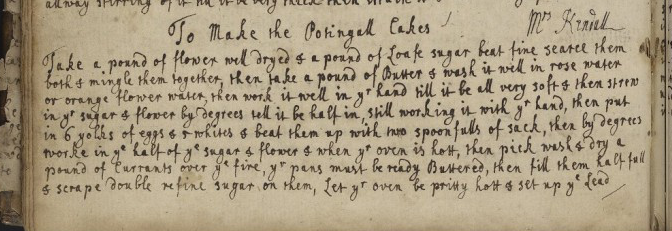 allway stirring of it till it be very thick then
To Make the Potingall Cakes Mrs Kendall
Take a pound of flower well dryed & a pound of Loafe sugar beat fine searce them
both & mingle them together, then take a pound of Butter & wash it well in rose water
or orange flower water, then work it well in yr hand till it be all very soft & then strew
in yr sugar & flower by degrees tell it be half in, still working it with yr hand, then put
in 6 yolks of eggs & whites & beat them up with two spoonfulls of sack, then by degrees
worke in ye half of ye sugar & flower & when yr oven is hott, then pick wash & dry a
pound of Currants over ye fire, yr pans must be ready Buttered, then fill them half full
& scrape double refine sugar on them, Let yr oven be pritty hott & set up ye Lead